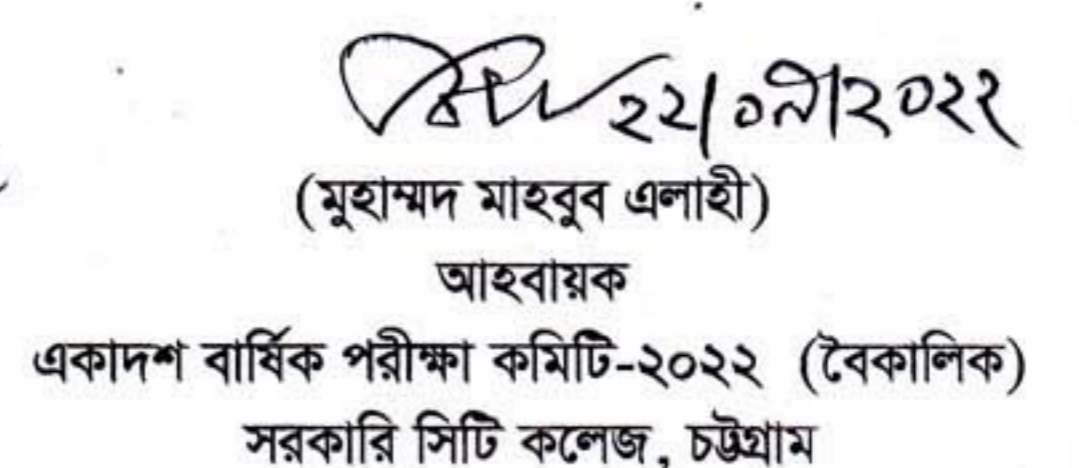 ২২/০৯/২০২২
(মুহাম্মদ মাহবুব এলাহী)
আহবায়ক
একাদশ বার্ষিক পরীক্ষা কমিটি-২০২২ (বৈকালিক)
সরকারি সিটি কলেজ, চট্টগ্রাম